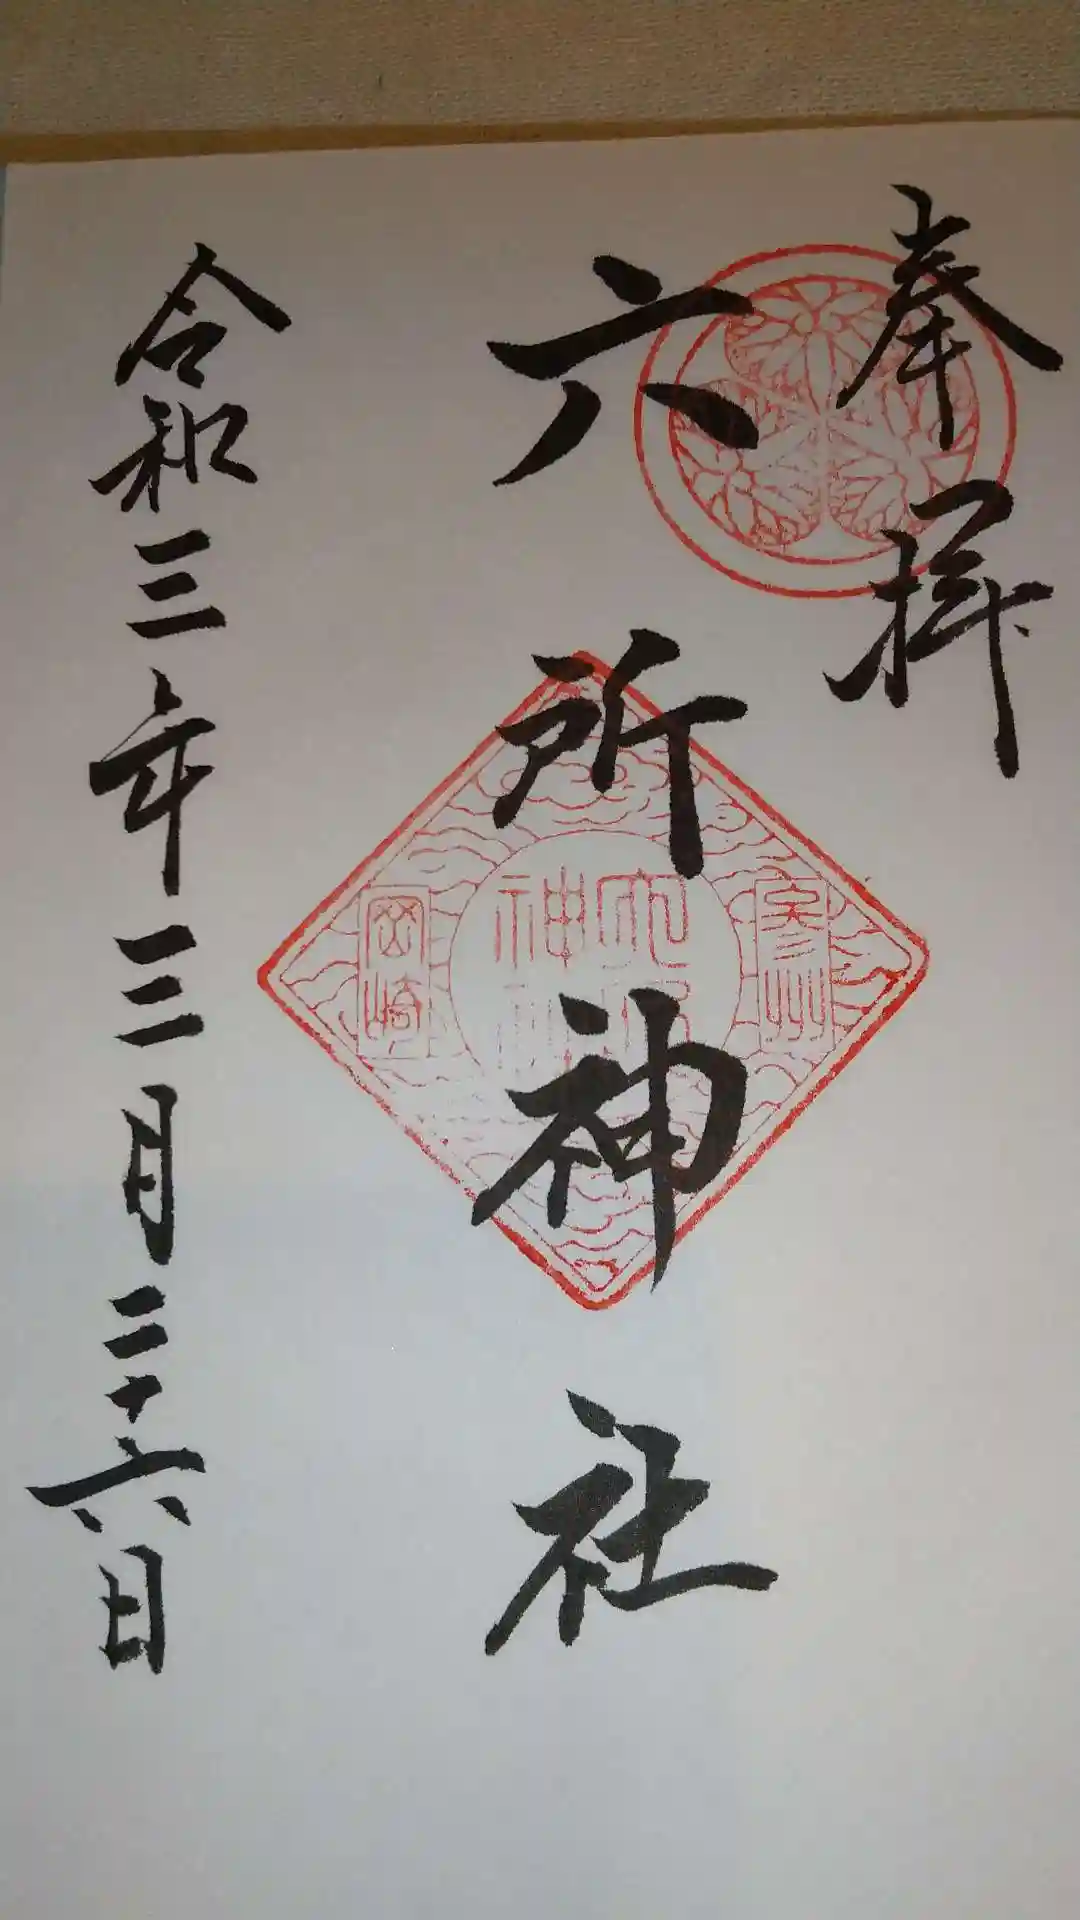 奉拝
六所神社
令和三年三月二十六日
参州
六所神社
岡崎